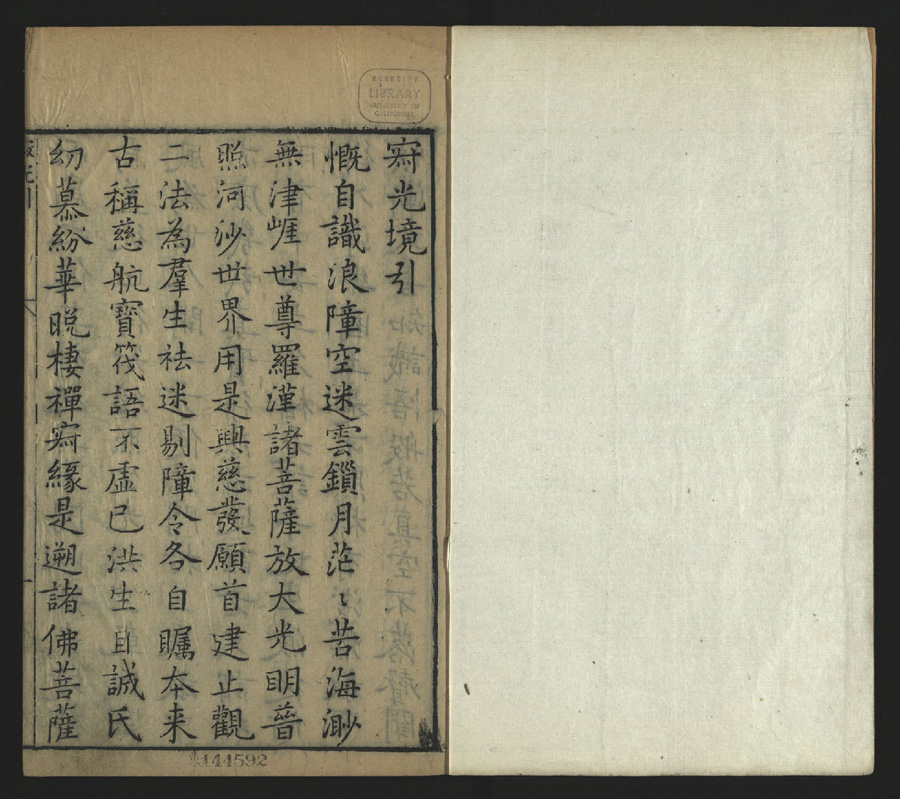 寂光境引
慨自識浪障空迷雲鎖月茫〻苦海渺
無津崕世尊羅漢諸菩薩放大光明普
照河沙世界用是興慈發願首建止觀
二法為羣生祛迷剔障令各自矚本来
古稱慈航寶筏語不虛已洪生自誠氏
幼慕紛華晚棲禪寂緣是遡諸佛菩薩
BERKELEY
LIBRARY
UNIVERSITY OF
CALIFORNIA
444592